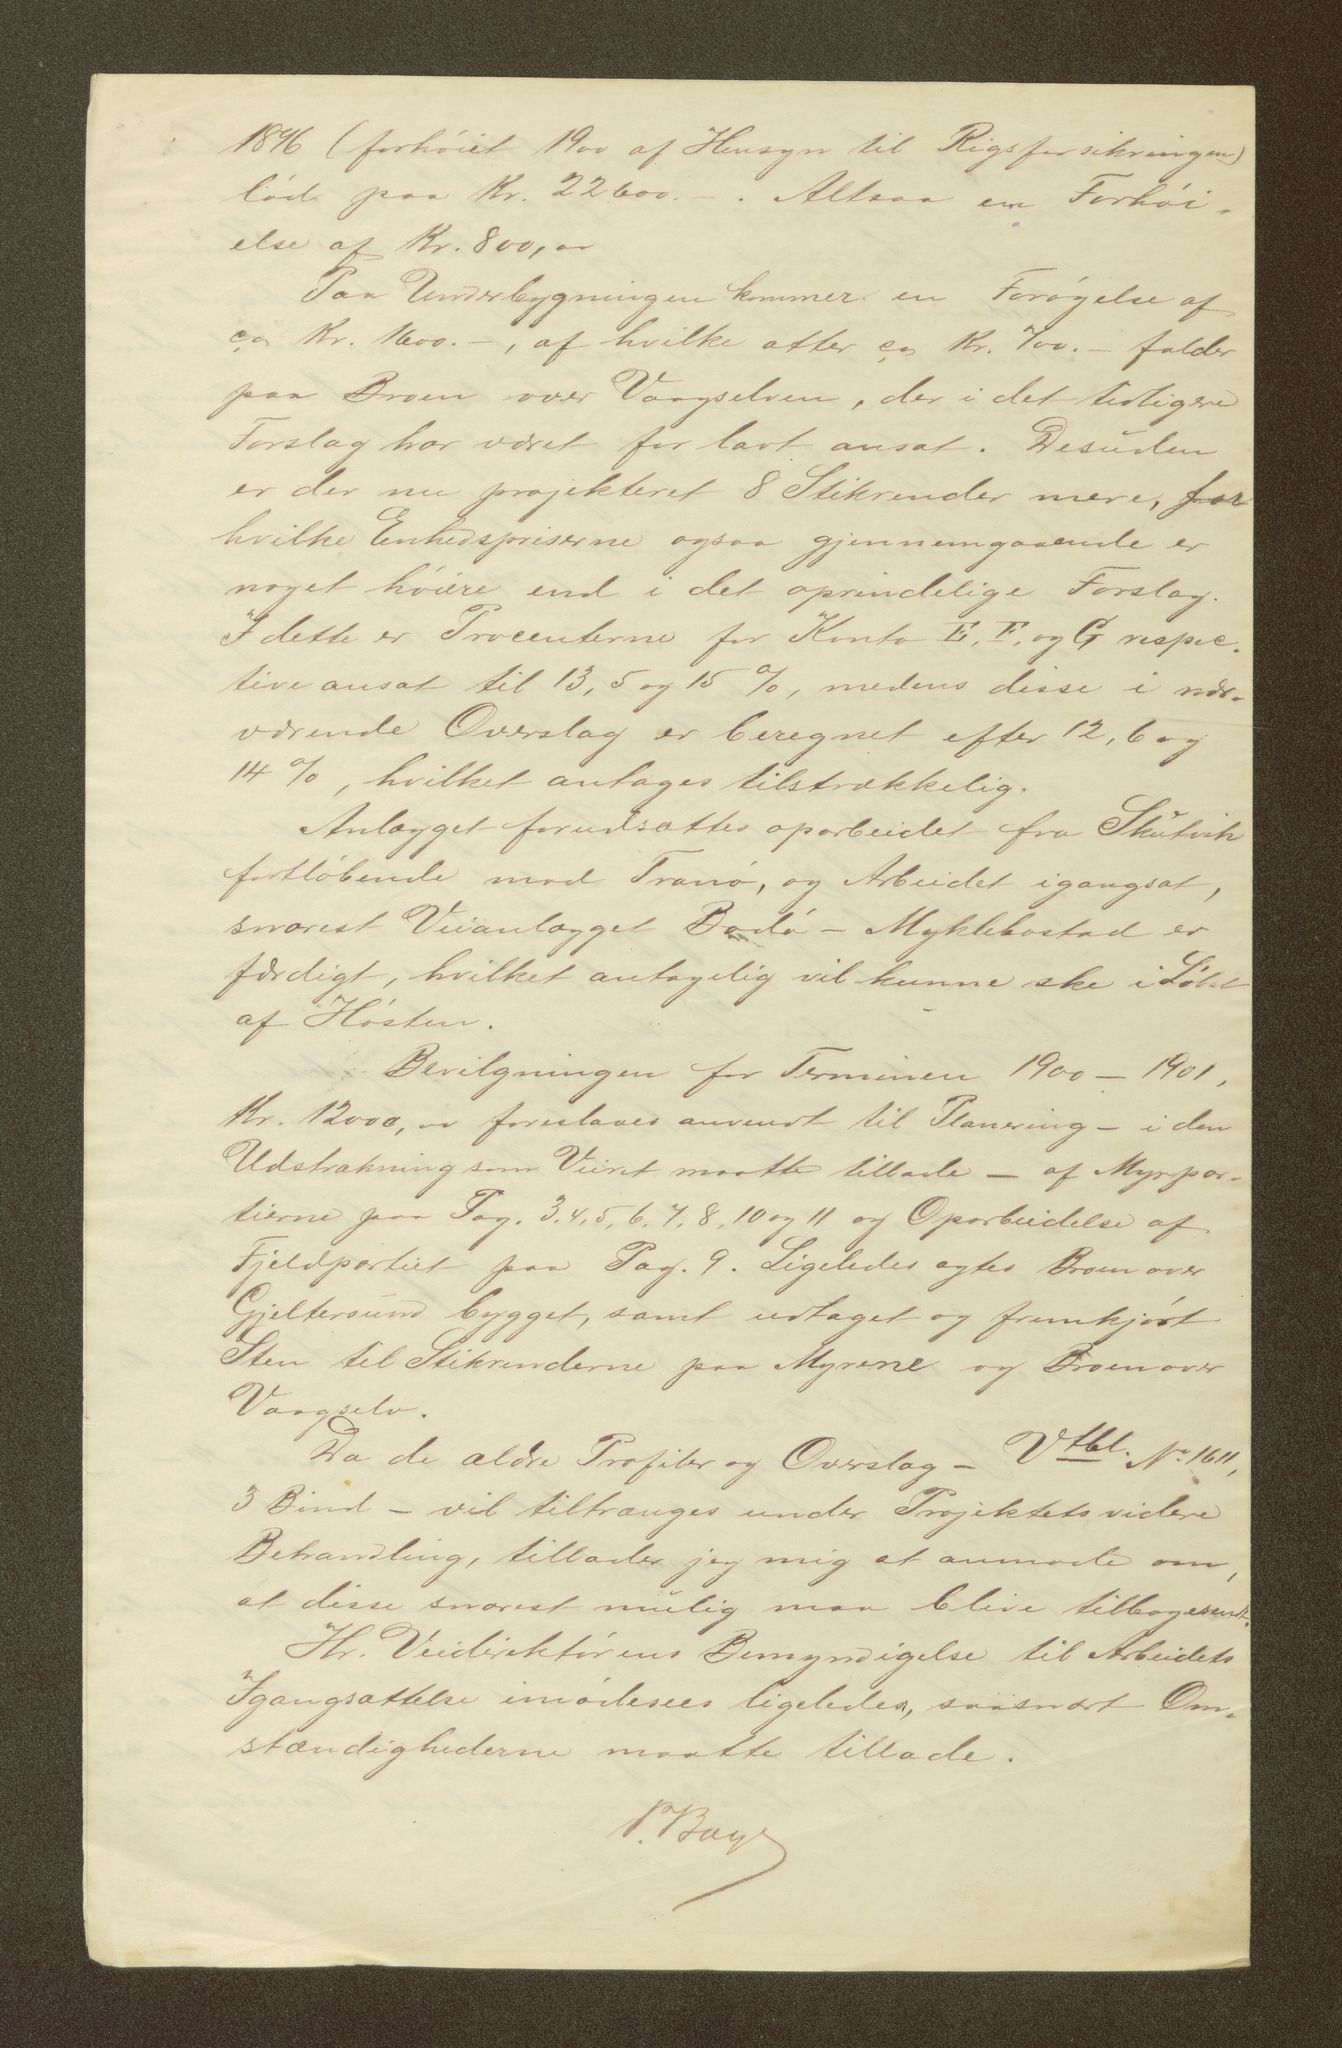 1896 (forhöiet 1900 af Hensyn til Rigsforsikringen)
löd paa Kr. 22600.-. Altsaa en Forhöi-
else af Kr. 800,00
Paa Underbygningen kommer en Forøgelse af
ca Kr. 1600.-, af hvilke atter ca Kr. 700.- falder
paa Broen over Vaagselven, der i det tidligere
Forslag har været for lavt ansat. Desuden
er der nu projekteret 8 Stikrender mere, for
hvilke Enhedspriserne ogsaa gjennemgaaende er
noget höiere end i det oprindelige Forslag.
I dette er Procenterne for Konto E, F, og G respec-
tive ansat til 13, 5 og 15 %, medens disse i nær-
værende Overslag er beregnet efter 12, 6 og
14 %, hvilket antages tilstrækkelig.
Anlægget forudsættes oparbeidet fra Skutvik
fortlöbende mod Tranö, og Arbeidet igangsat,
snarest Veianlægget Bodö - Myklebostad er
færdigt, hvilket antagelig vil kunne ske i Löbet
af Hösten.
Bevilgningen for Terminen 1900 - 1901,
Kr. 12000,00 foreslaaes anvendt til Planering - i den
Udstrækning som Veiret maatte tillade - af Myrpar-
tierne paa Pag. 3, 4, 5, 6, 7, 8, 10 og 11 og Oparbeidelse af
Fjeldpartiet paa Pag. 9. Ligeledes agtes Broen over
Gjeltersund bygget, samt udtaget og fremkjört
Sten til Stikrenderne paa Myrene og Broen over
Vaagselv.
Da de ældre Profiler og Overslag - Vtbl. No 1611,
3 Bind - vil tiltrænges under Projektets videre
Behandling, tillader jeg mig at anmode om,
at disse snarest mulig maa blive tilbagesendt.
Hr. Veidirektörens Bemyndigelse til Arbeidets
Igangsættelse imödesees ligeledes, saasnart Om-
stændighederne maatte tillade.